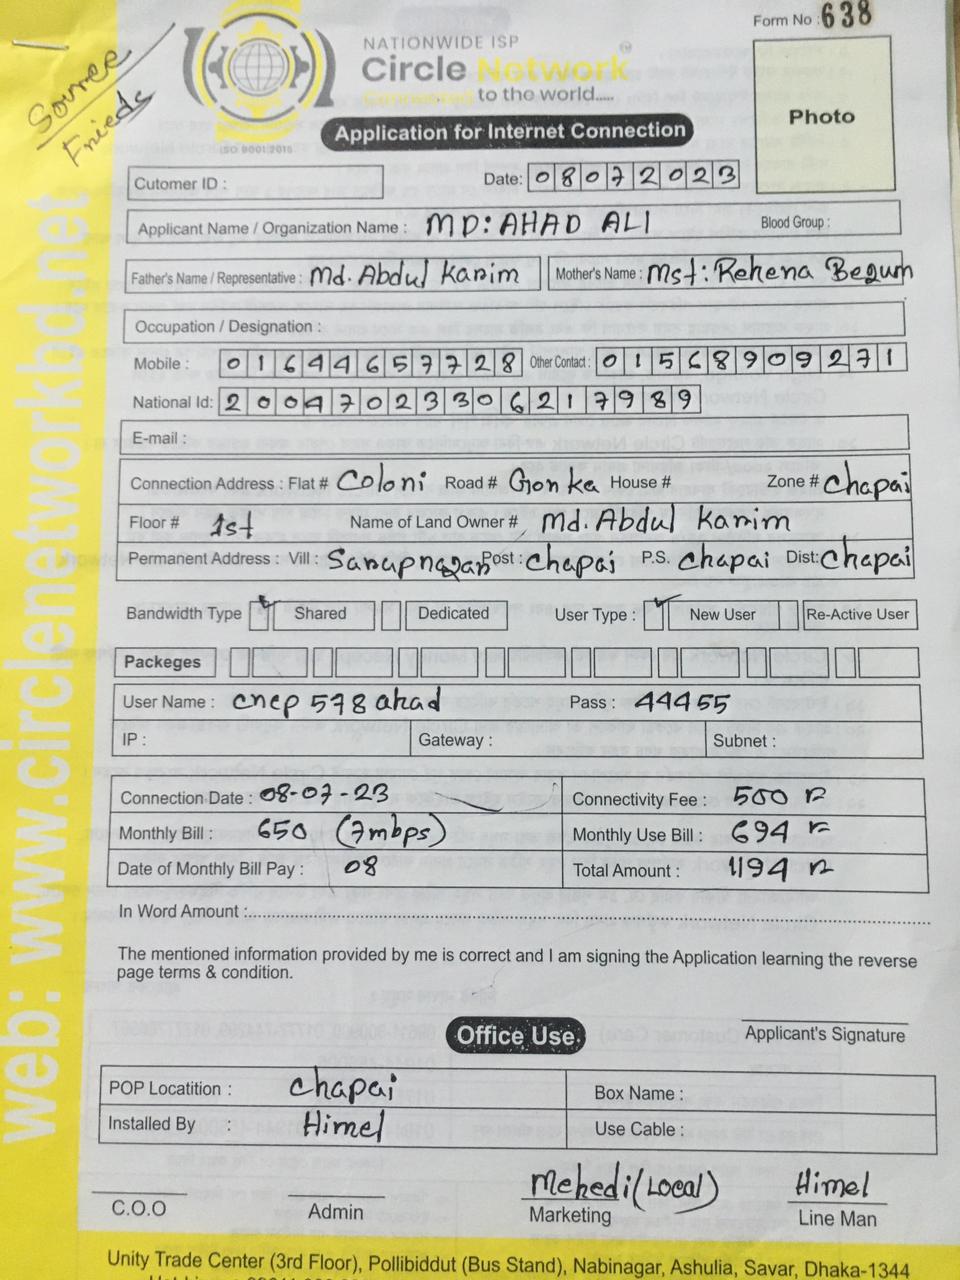 Form No : 638
Source
Frieds
NATIONWIDE ISP
Circle Network
Connected to the world....
ISO 9001:2015
Application for Internet Connection
Photo
Cutomer ID :
Date: 08072023
Applicant Name / Organization Name : MD: AHAD ALI
Blood Group :
Father's Name / Representative : Md. Abdul Karim
Mother's Name : Mst: Rehena Begum
Occupation / Designation :
Mobile : 01644657728 Other Contact : 01568909271
National Id: 20047023306217989
E-mail :
Connection Address : Flat # Coloni Road # Gonka House # Zone # Chapai
Floor # 1st Name of Land Owner # Md. Abdul Karim
Permanent Address : Vill : Sarapnagar Post : Chapai P.S. Chapai Dist: Chapai
Bandwidth Type Shared Dedicated User Type : New User Re-Active User
Packeges
User Name : cncp578ahad Pass : 44455
IP : Gateway : Subnet :
Connection Date : 08-07-23 Connectivity Fee : 500
Monthly Bill : 650 (7mbps) Monthly Use Bill : 694
Date of Monthly Bill Pay : 08 Total Amount : 1194
In Word Amount :
The mentioned information provided by me is correct and I am signing the Application learning the reverse
page terms & condition.
Applicant's Signature
Office Use.
POP Locatition : Chapai Box Name :
Installed By : Himel Use Cable :
Mehedi (Local) Himel
C.O.O Admin Marketing Line Man
web: www.circlenetworkbd.net
Unity Trade Center (3rd Floor), Pollibiddut (Bus Stand), Nabinagar, Ashulia, Savar, Dhaka-1344